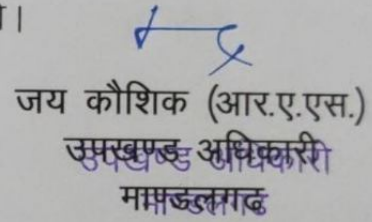 ।
जय कौशिक (आर.ए.एस.)
उपखण्ड अधिकारी
माण्डलगढ